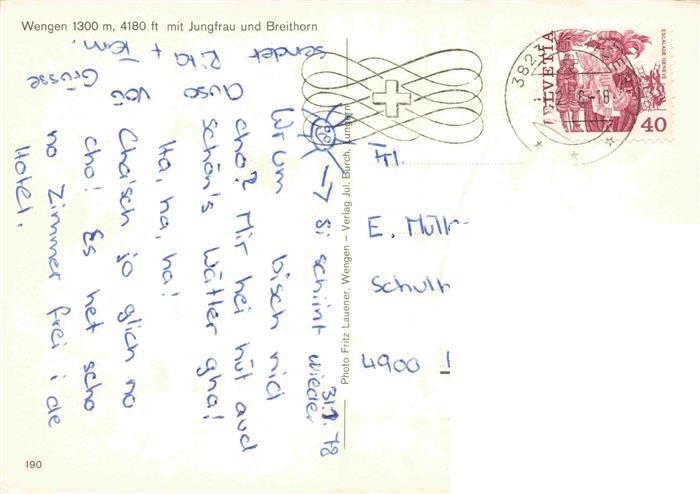 Wengen 1300 m, 4180 ft mit Jungfrau und Breithorn
31.7.78
→ Si schiint wieder
Wrum bisch nid
cho? Mir hei hüt aud
schön's Wätter gha!
Ha, ha, ha!
Cha'sch jo glich no
cho! Es het scho
no Zimmer frei i de
Hotel.
Auso Grüsse
sendet Rita + Fam.
Photo Fritz Lauener, Wengen – Verlag Jul. Burch, Lungern
190
HELVETIA
ESCALADE GENÈVE
40
3823
Frl.
E. Müll
Schulh
4900